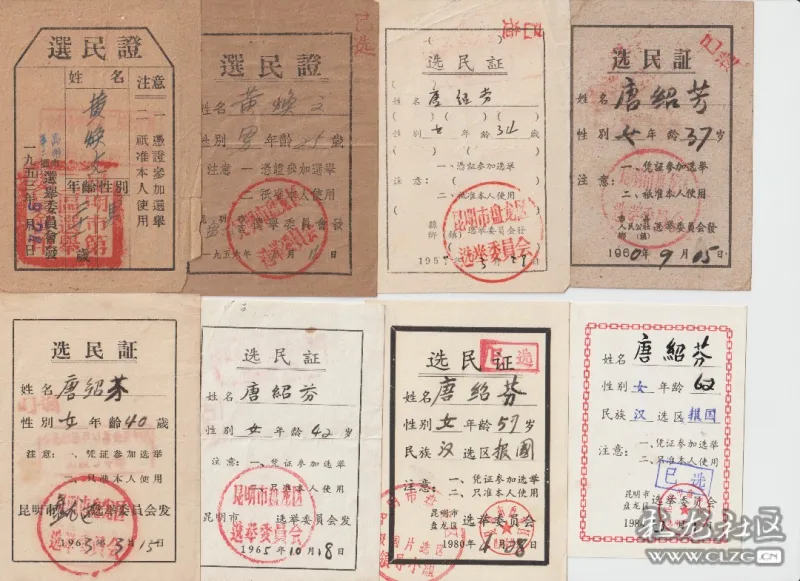 選民證
姓名
黄焕文
年齡
性別
男
歲
注意
一憑證參加選舉
二祇准本人使用
選舉委員會發
選民證
已选
姓名 黄焕文
性別 男 年齡 25 歲
注意 一憑證參加選舉
二祇准本人使用
選舉委員會發
一九五六年
选民証
姓名 唐紹芬
性別 女 年齡 34 歲
注意:
一、憑証参加选举
二、祇准本人使用
昆明市盘龙区
选举委員会
选举委員会發
选民証
姓名 唐紹芳
性別 女 年齡 37 歲
注意:
一、凭証参加选举
二、祇准本人使用
人民公社
选举委員会發
1960年9月05日
选民証
姓名 唐紹芬
性別 女 年龄 40 歲
注意:
一、凭证参加选举
二、只准本人使用
昆明市
选举委員会发
1963 3月15日
选民証
姓名 唐绍芬
性别 女 年龄 42 岁
注意:
一、凭证参加选举
二、只准本人使用
昆明市盘龙区
选举委員会
昆明市
选举委員会发
1965年10月18日
选民证
已选
姓名 唐绍芬
性别 女 年龄 57 岁
民族 汉 选区 报國
注意:
一、凭证参加选举
二、只准本人使用
昆明市
盘龙区
选举委員会
1980年4月08日
姓名 唐紹芬
性别 女 年龄
民族 汉 选区 报国
注意:
一、凭证参加选举
二、只准本人使用
已选
昆明市
盘龙区
选举委员会
社区
WWW.CLZG.CN